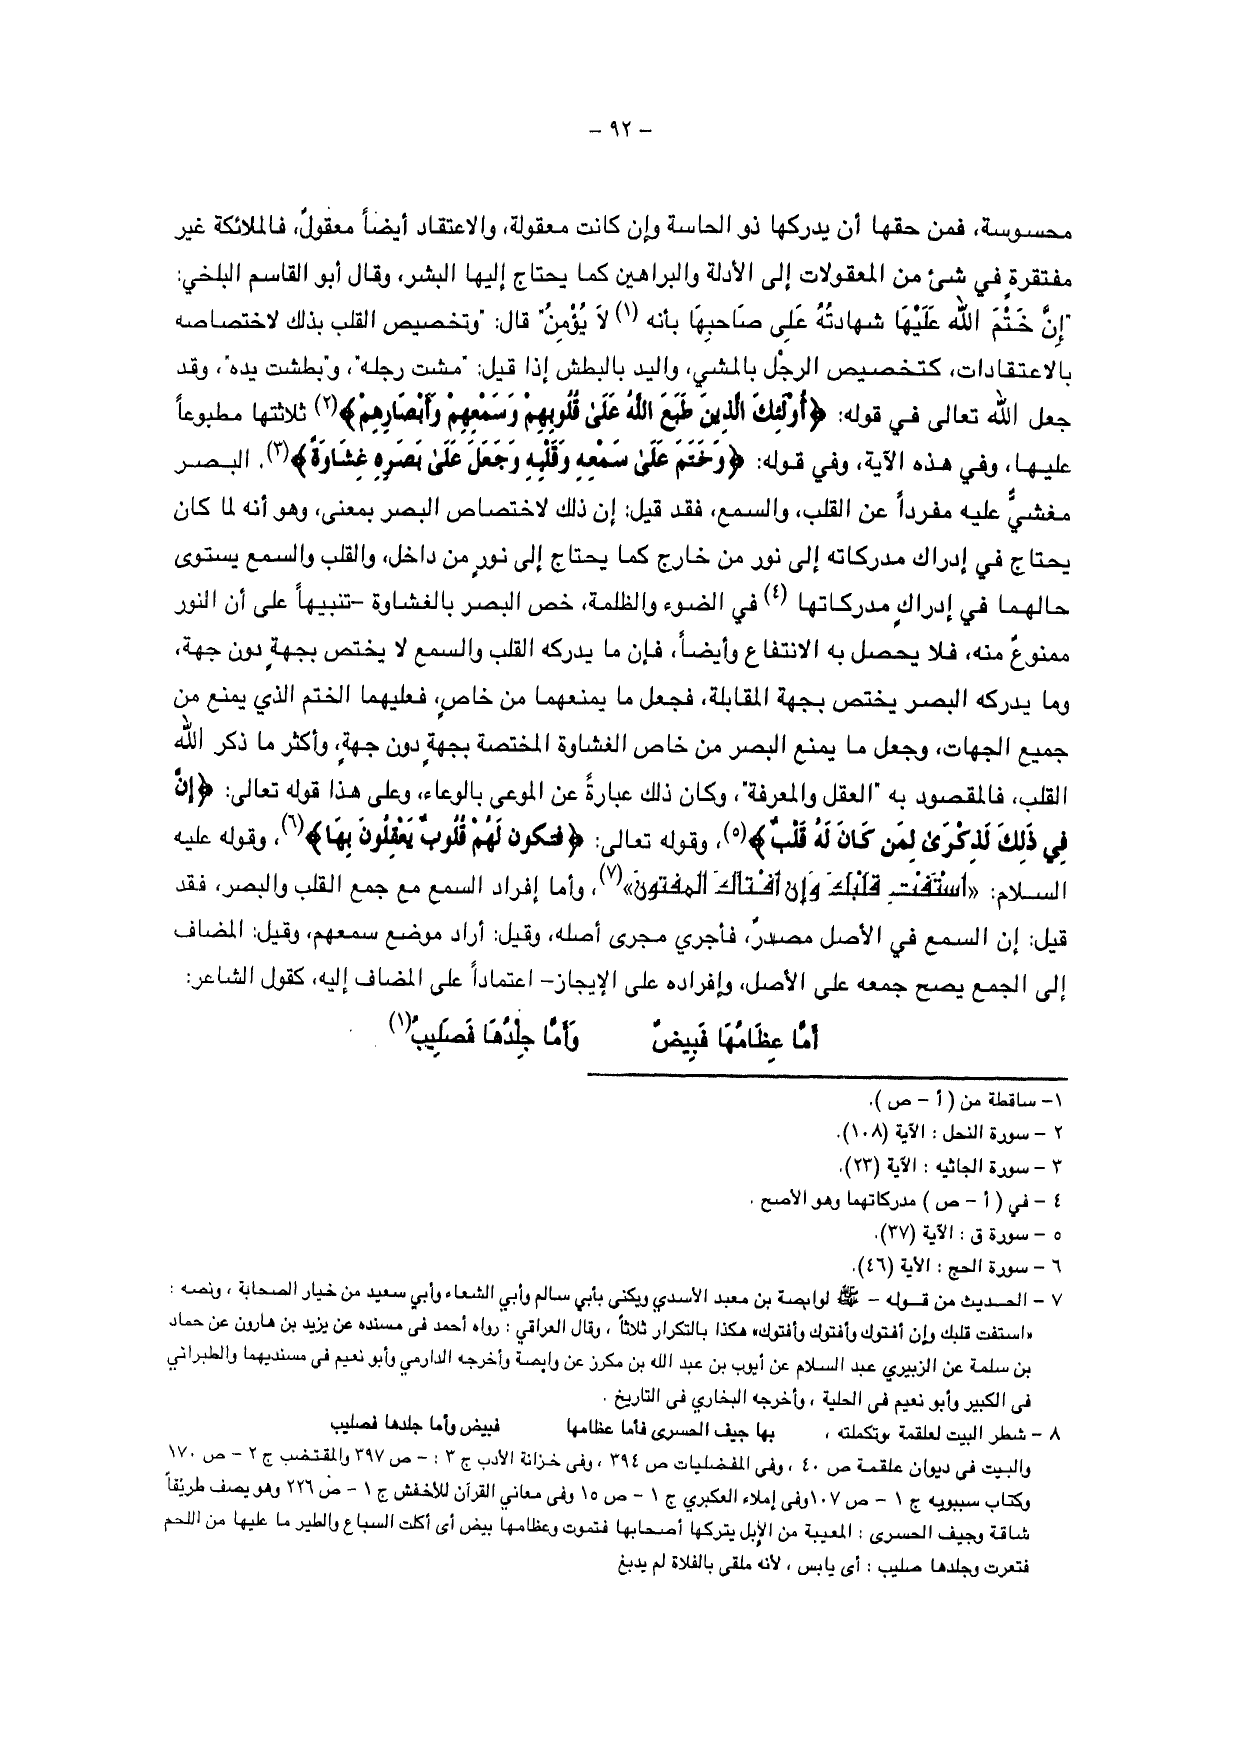 – ٩٢ –
محسوسة، فمن حقها أن يدركها ذو الحاسة وإن كانت معقولة، والاعتقاد أيضاً معقولٌ، فالملائكة غير
مفتقرةٍ في شئ من المعقولات إلى الأدلة والبراهين كما يحتاج إليها البشر، وقال أبو القاسم البلخي:
"إِنَّ خَتْمَ اللّٰه عَلَيْهَا شهادتُهُ عَلى صَاحبِهَا بأنه (١) لاَ يُؤْمِنُ" قال: "وتخصيص القلب بذلك لاختصاصه
بالاعتقادات، كتخصيص الرجْل بالمشي، واليد بالبطش إذا قيل: "مشت رجله"، و"بطشت يده"، وقد
جعل اللّٰه تعالى في قوله: ﴿أُوْلَئِكَ الَّذِينَ طَبَعَ اللَّهُ عَلَىٰ قُلُوبِهِمْ وَسَمْعِهِمْ وَأَبْصَارِهِمْ﴾(٢) ثلاثتها مطبوعاً
عليها، وفي هذه الآية، وفي قوله: ﴿وَخَتَمَ عَلَىٰ سَمْعِهِ وَقَلْبِهِ وَجَعَلَ عَلَىٰ بَصَرِهِ غِشَاوَةً﴾(٣). البصر
مغشيٌّ عليه مفرداً عن القلب، والسمع، فقد قيل: إن ذلك لاختصاص البصر بمعنى، وهو أنه لما كان
يحتاج في إدراك مدركاته إلى نور من خارج كما يحتاج إلى نورٍ من داخل، والقلب والسمع يستوى
حالهما في إدراكِ مدركاتها (٤) في الضوء والظلمة، خص البصر بالغشاوة –تنبيهاً على أن النور
ممنوعٌ منه، فلا يحصل به الانتفاع وأيضاً، فإن ما يدركه القلب والسمع لا يختص بجهةٍ دون جهة،
وما يدركه البصر يختص بجهة المقابلة، فجعل ما يمنعهما من خاصٍ، فعليهما الختم الذي يمنع من
جميع الجهات، وجعل ما يمنع البصر من خاص الغشاوة المختصة بجهةٍ دون جهةٍ، وأكثر ما ذكر اللّٰه
القلب، فالمقصود به "العقل والمعرفة"، وكان ذلك عبارةً عن الموعى بالوعاء، وعلى هذا قوله تعالى: ﴿إِنَّ
فِي ذَلِكَ لَذِكْرَىٰ لِمَن كَانَ لَهُ قَلْبٌ﴾(٥)، وقوله تعالى: ﴿فَتكون لَهُمْ قُلُوبٌ يَعْقِلُونَ بِهَا﴾(٦)، وقوله عليه
السلام: «استَفْتِ قلبَكَ وَإِن أفتاكَ المفتونَ»(٧)، وأما إفراد السمع مع جمع القلب والبصر، فقد
قيل: إن السمع في الأصل مصدرٌ، فأجري مجرى أصله، وقيل: أراد موضع سمعهم، وقيل: المضاف
إلى الجمع يصح جمعه على الأصل، وإفراده على الإيجاز– اعتماداً على المضاف إليه، كقول الشاعر:
أمَّا عِظَامُهَا فَبِيضٌ وَأَمَّا جِلْدُهَا فَصَلِيبُ(١)
١– ساقطة من ( أ – ص ).
٢ – سورة النحل : الآية (١٠٨).
٣ – سورة الجاثيه : الآية (٢٣).
٤ – في ( أ – ص ) مدركاتهما وهو الأصح .
٥ – سورة ق : الآية (٣٧).
٦ – سورة الحج : الآية (٤٦).
٧ – الحديث من قوله – ﷺ لوابصة بن معبد الأسدي ويكنى بأبي سالم وأبي الشعاء وأبي سعيد من خيار الصحابة ، ونصه :
«استفت قلبك وإن أفتوك وأفتوك وأفتوك» هكذا بالتكرار ثلاثاً ، وقال العراقي : رواه أحمد فى مسنده عن يزيد بن هارون عن حماد
بن سلمة عن الزبيري عبد السلام عن أيوب بن عبد الله بن مكرز عن وابصة وأخرجه الدارمي وأبو نعيم فى مسنديهما والطبراني
فى الكبير وأبو نعيم فى الحلية ، وأخرجه البخاري فى التاريخ .
٨ – شطر البيت لعلقمة وتكملته ، بها جيف الحسرى فأما عظامها فبيض وأما جلدها فصليب
والبيت فى ديوان علقمة ص ٤٠ ، وفى المفضليات ص ٣٩٤ ، وفى خزانة الأدب ج ٣ : – ص ٣٩٧ والمقتضب ج ٢ – ص ١٧٠
وكتاب سيبويه ج ١ – ص ١٠٧ وفى إملاء العكبري ج ١ – ص ١٥ وفى معاني القرآن للأخفش ج ١ – ص ٢٢٦ وهو يصف طريقاً
شاقة وجيف الحسرى : المعيبة من الإبل يتركها أصحابها فتموت وعظامها بيض أى أكلت السباع والطير ما عليها من اللحم
فتعرت وجلدها صليب : أى يابس ، لأنه ملقى بالفلاة لم يدبغ